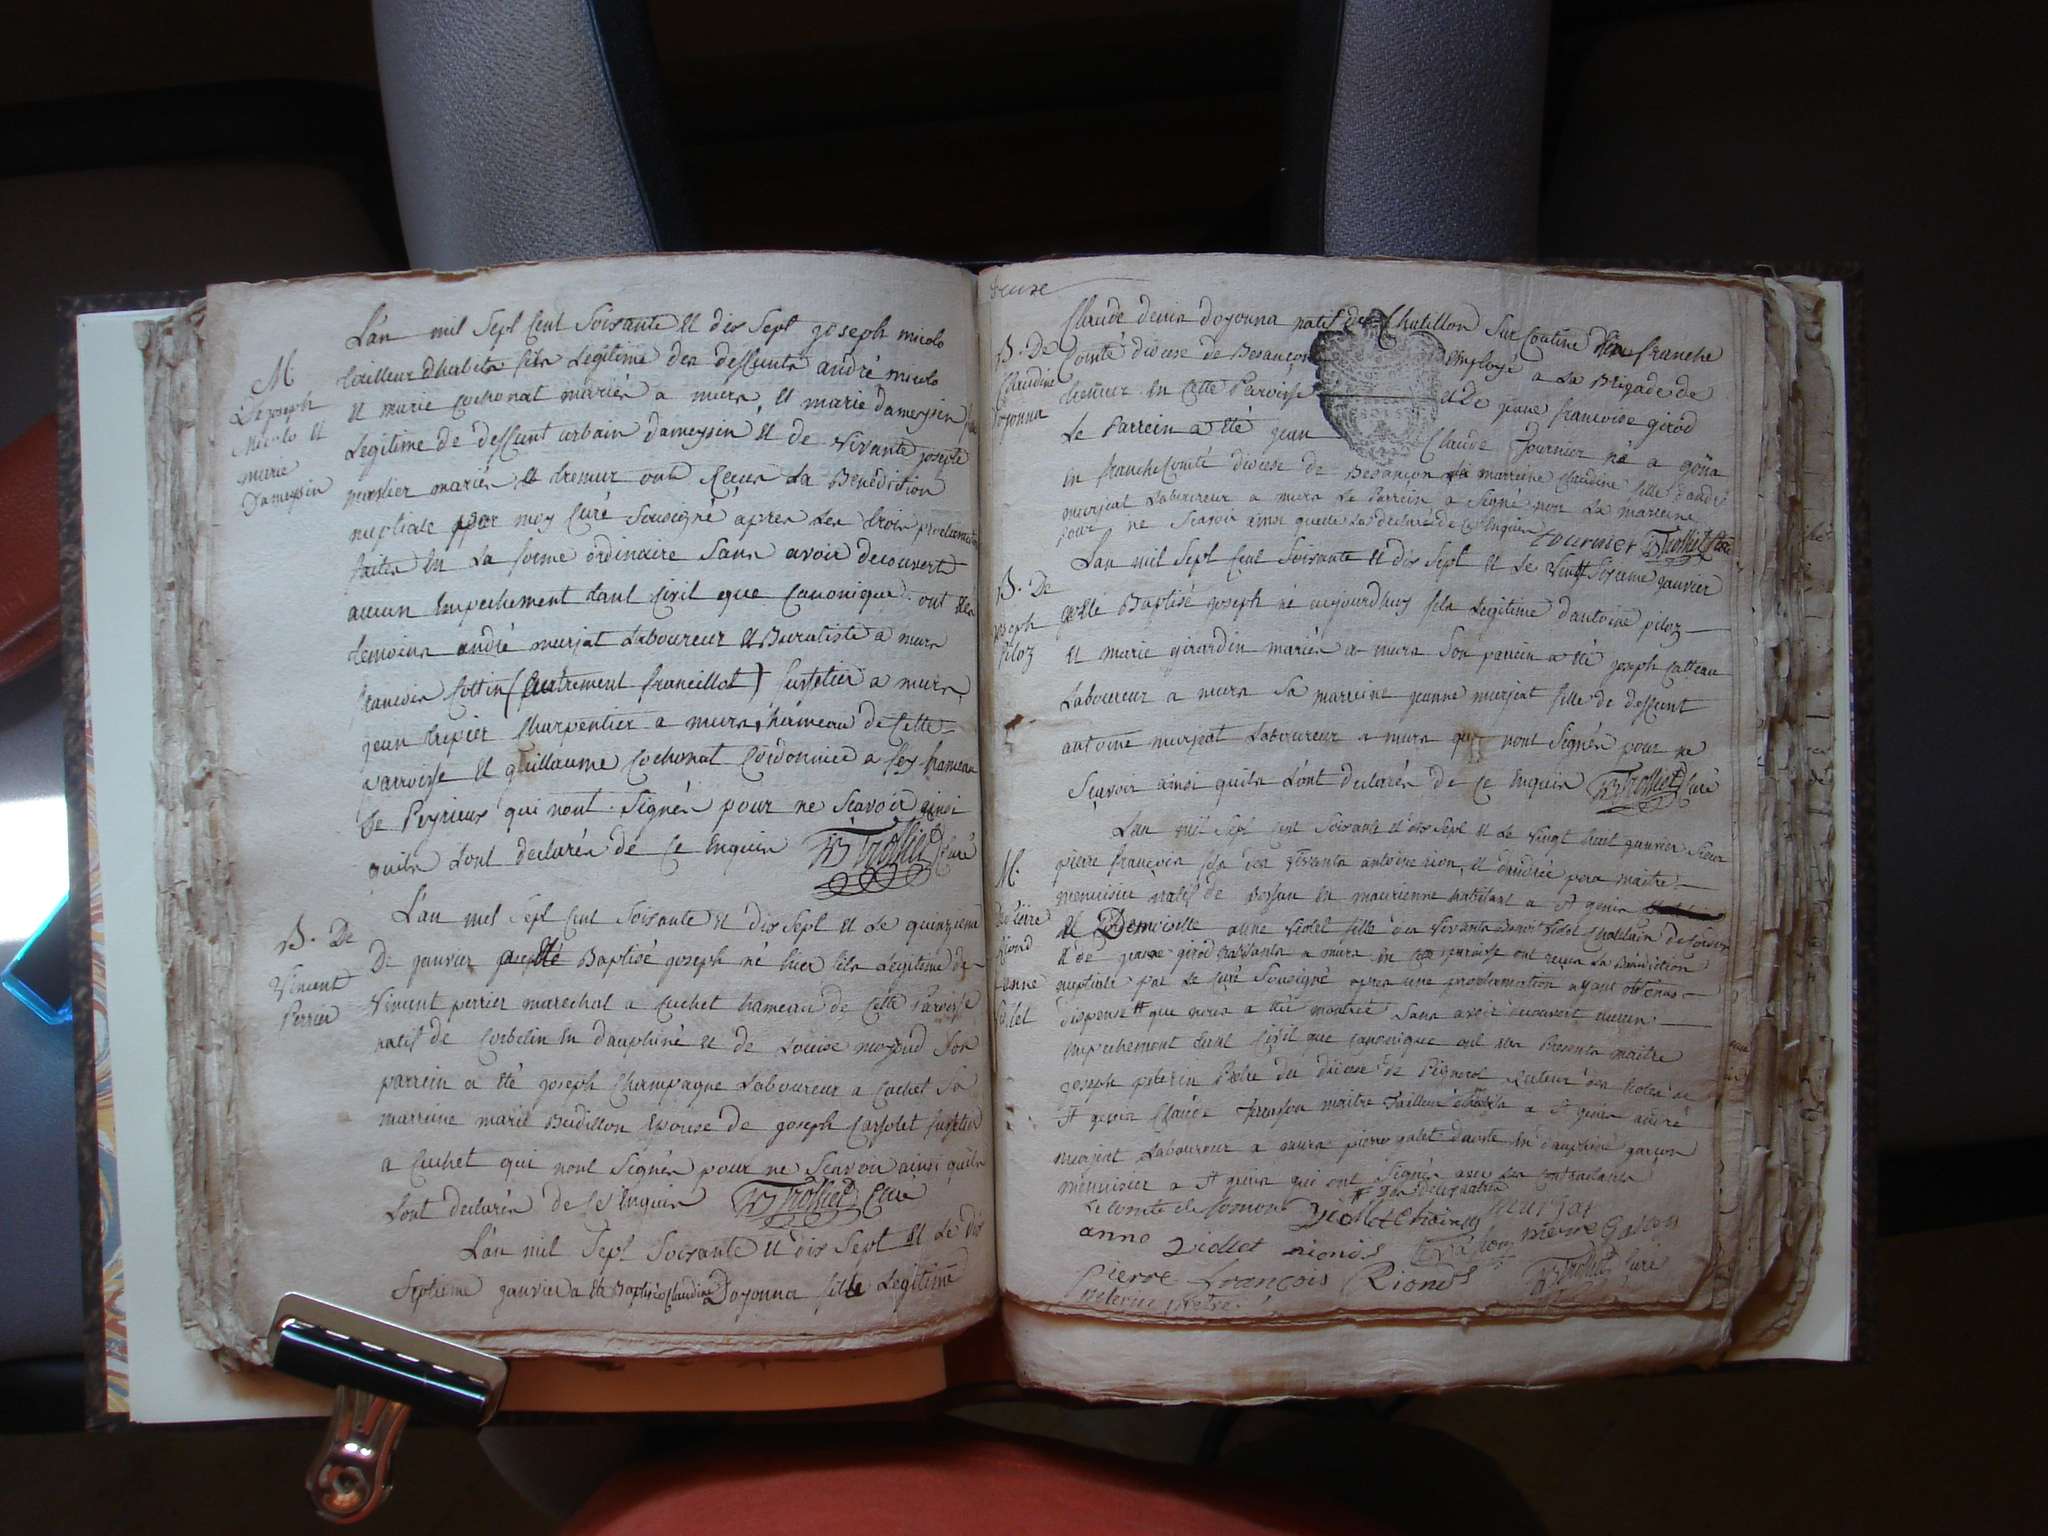 M.
De joseph
Micolo et
marie
Dameysin
L'an mil sept cent soixante et dix sept joseph micolo
tailleur d'habits fils legitime des deffunts andré micolo
et marie cochonat mariés a murs et marie dameysin fille
legitime de deffunt urbain Dameysin et de vivante josepte
mariés et ont Recus La Benediction
nuptiale par moy Curé soussigné apres les trois proclamations
faites en La forme ordinaire sans avoir decouvert
aucun Empechement tant Civil que Canonique. ont été
temoins andré murjat Laboureur et Buraliste a murs
francois Cottin (autrement francillot) a murs
jean trepier Charpentier a murs hameau de Cette
parroisse et guillaume Cochonat Cordonnier a fey hameau
de Peyrieux qui n'ont signés pour ne Scavoir ainsi
quils L'ont declarés de ce Enquis Trolliet Curé
B. De
Vincent
Perrier
L'an mil sept cent soixante et dix sept et Le quinzieme
De janvier a été Baptisé joseph né hier fils Legitime de
Vincent perrier marechal a Cuchet hameau de Cette Parroisse
natif de Corbelin en dauphiné et de Louise moyoud son
parrein a été joseph Champagne Laboureur a Cuchet Sa
marreine marie Budillon Epouse de joseph Carsolet
a Cuchet qui n'ont signés pour ne Scavoir ainsi quils
L'ont declarés de ce Enquis Trolliet Curé
L'an mil Sept Soixante et dix Sept et Le dix
Septieme janvier a été Baptisée Claudine Doyonna fille Legitime
B. De
Claudine
Doyonna
Claude denis doyonna natif de Chatillon sur Coutine en franche
Comté diocese de Besançon Employé a La Brigade de
en Cette Paroisse et de jeane francoise girod
Le Parrein a été jean Claude Tournier né a
en franche Comté diocese de Besançon La marreine Claudine fille d'andé
murjat Laboureur a murs Le Parrein a signé non La marreine
pour ne Scavoir ainsi quelle La declaré de ce Enquise tournier Trolliet Curé
B. De
joseph
Piloz
L'an mil Sept Cent Soixante et dix Sept et Le vingt Sixieme janvier
a été Baptisé joseph né aujourdhuy fils Legitime d'antoine piloz
et marie girardin mariés a murs Son parrein a été joseph catteau
Laboureur a murs Sa marreine jeanne murjat fille de deffunt
antoine murjeat Laboureur a murs qui n'ont signés pour ne
Sçavoir ainsi quils L'ont declarés de ce Enquis Trolliet Curé
M.
De Pierre
Riond
anne
Violet
L'an mil sept cent soixante et dix sept et Le vingt huit janvier sieur
pierre francois fils des vivants antoine rion, et d'andrée pera maitre
menuisier natif de en maurienne habitant a St genis
et Demoiselle anne violet fille des vivants Benoit violet Chatelain de
et de jeane girod habitants a murs en paroisse ont recus La Benediction
nuptiale par Le Curé Soussigné apres une proclamation ayant obtenus
dispense que nous a été montrée Sans avoir decouvert aucun
empechement tant Civil que canonique ont été Presents maitre
joseph peterin Pretre du diocese de Pignerol Recteur des Ecoles de
St genis Claude maitre Tailleur d'habits a St genis andré
murjeat Laboureur a murs pierre galet d'aoste en dauphiné garçon
menuisier a St genis qui ont signés avec Les contractants
Le Comte de Violet murjat
anne Violet riond pierre
pierre françois Riond Trolliet Curé
peterin prêtre.